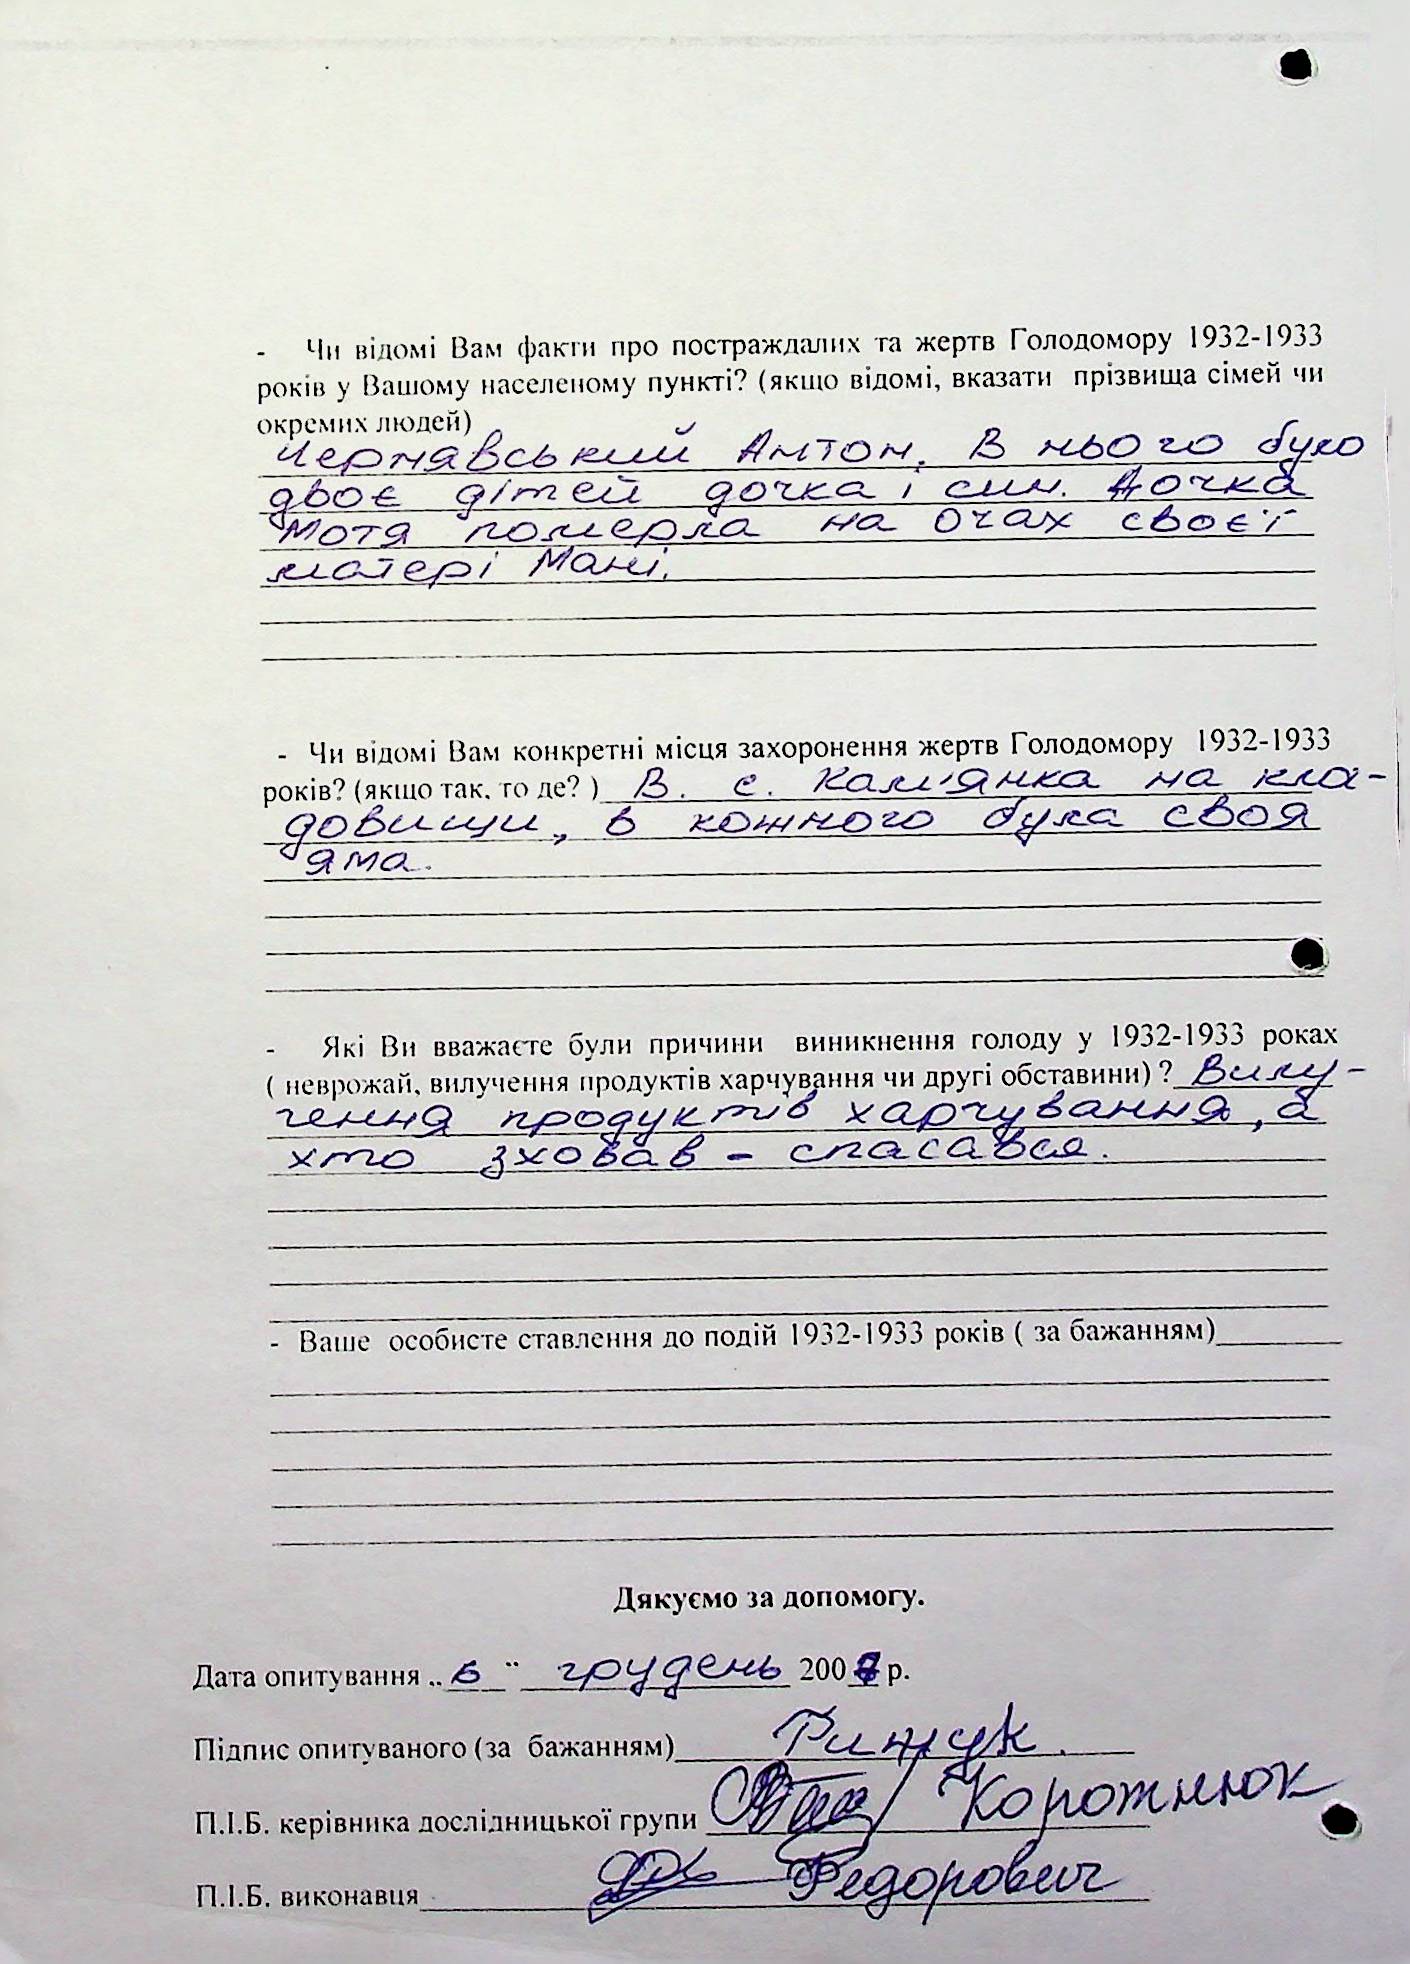 - Чи відомі Вам факти про постраждалих та жертв Голодомору 1932-1933
років у Вашому населеному пункті? (якщо відомі, вказати прізвища сімей чи
окремих людей)
Чернявський Антон. В нього було
двоє дітей дочка і син. Дочка
Мотя померла на очах своєї
матері Мані.
- Чи відомі Вам конкретні місця захоронення жертв Голодомору 1932-1933
років? (якщо так, то де? ) В. с. Кам'янка на кла-
довищи, в кожного була своя
яма.
- Які Ви вважаєте були причини виникнення голоду у 1932-1933 роках
( неврожай, вилучення продуктів харчування чи другі обставини) ? Вилу-
чення продуктів харчування, а
хто зховав - спасався.
- Ваше особисте ставлення до подій 1932-1933 років ( за бажанням)
Дякуємо за допомогу.
Дата опитування „6" грудень 2007 р.
Підпис опитуваного (за бажанням)
П.І.Б. керівника дослідницької групи Корожнюк
П.І.Б. виконавця Федорович